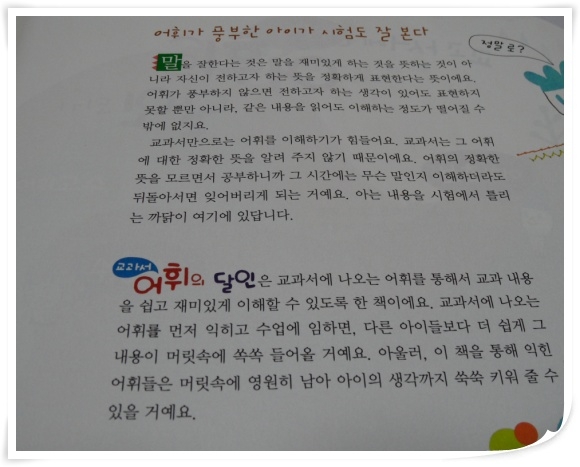 어휘가 풍부한 아이가 시험도 잘 본다
정말로?
말을 잘한다는 것은 말을 재미있게 하는 것을 뜻하는 것이 아
니라 자신이 전하고자 하는 뜻을 정확하게 표현한다는 뜻이에요.
어휘가 풍부하지 않으면 전하고자 하는 생각이 있어도 표현하지
못할 뿐만 아니라, 같은 내용을 읽어도 이해하는 정도가 떨어질 수
밖에 없지요.
교과서만으로는 어휘를 이해하기가 힘들어요. 교과서는 그 어휘
에 대한 정확한 뜻을 알려 주지 않기 때문이에요. 어휘의 정확한
뜻을 모르면서 공부하니까 그 시간에는 무슨 말인지 이해하더라도
뒤돌아서면 잊어버리게 되는 거예요. 아는 내용을 시험에서 틀리
는 까닭이 여기에 있답니다.
교과서 어휘의 달인은 교과서에 나오는 어휘를 통해서 교과 내용
을 쉽고 재미있게 이해할 수 있도록 한 책이에요. 교과서에 나오는
어휘를 먼저 익히고 수업에 임하면, 다른 아이들보다 더 쉽게 그
내용이 머릿속에 쏙쏙 들어올 거예요. 아울러, 이 책을 통해 익힌
어휘들은 머릿속에 영원히 남아 아이의 생각까지 쑥쑥 키워 줄 수
있을 거예요.